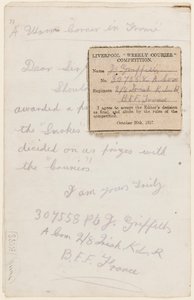 "A Warm Corner in France"
Dear Sir
Should
awarded a p
the "Smokes
decided on as prizes with
the "Courier"
I am yours truly
307558 Pte J. Griffiths
A Com 2/8 Irish K.L.R
B.E.F. France
LIVERPOOL "WEEKLY COURIER"
COMPETITION.
Name J. Griffiths
No. 307558 A Com
Regiment 2/8 Irish K.L.R
B.E.F. France
I agree to accept the Editor's decision
as final, and abide by the rules of the
competition.
October 20th, 1917.